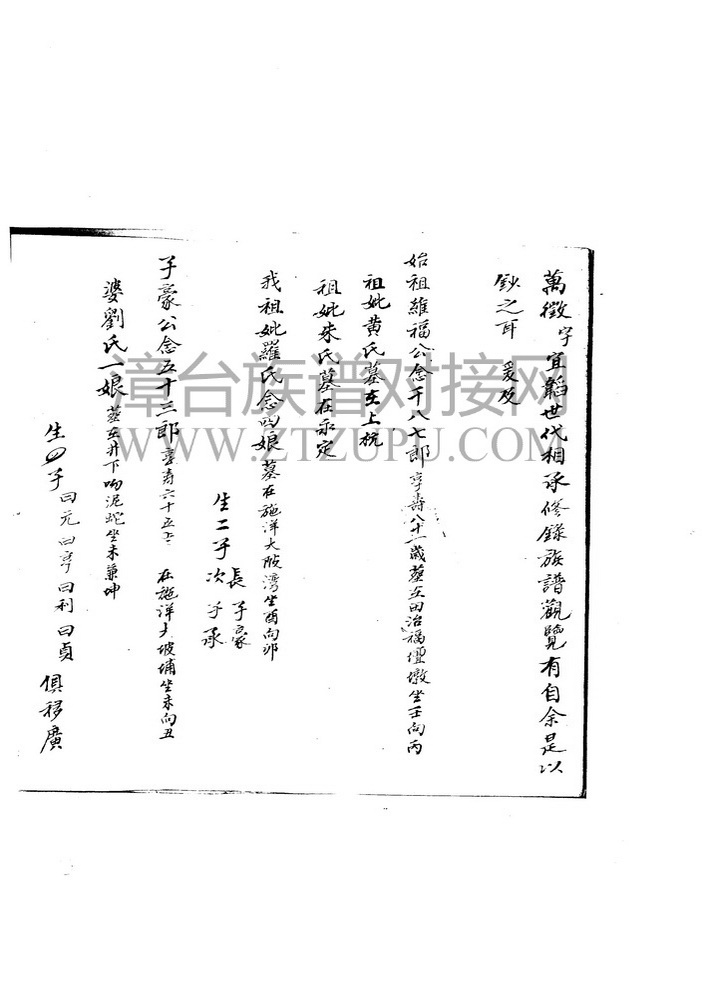 萬徵字宜韜世代相承修錄族譜觀覽有自余是以
鈔之耳 爰及
始祖維福公念千八七郎享壽八十一歲墓在田治福壇墩坐壬向丙
祖妣黄氏墓在上杭
祖妣朱氏墓在永定
我祖妣羅氏念四娘墓在施洋大陂湾坐酉向卯
生二子長子豪
次子承
子豪公念五十三郎享壽六十五 在施洋大坡埔坐未向丑
婆劉氏一娘墓在井下 泥蛇坐未兼坤
生四子曰元曰亨曰利曰貞 俱移廣
漳台族谱对接网
WWW.ZTZUPU.COM